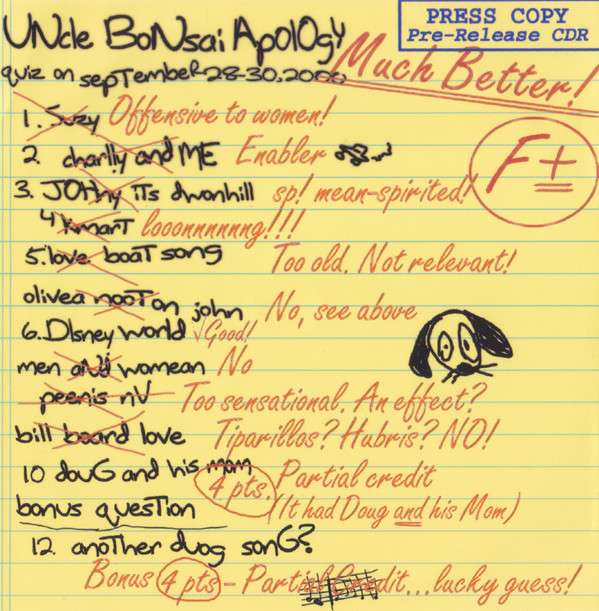 UNcle BoNsai Apol0gy
PRESS COPY
Pre-Release CDR
quiz on sepTember 28-30, 2000
Much Better!
F+
1. Suzy Offensive to women!
2. charlly and ME Enabler
3. JOthy iTs dwonhill sp! mean-spirited!
4 KmarT looonnnnnng!!!!
5. love boaT song Too old. Not relevant!
olivea nooTon john No, see above
6. DIsney world √Good!
men aNd womean No
peenis nV Too sensational. An effect?
bill board love Tiparillos? Hubris? NO!
10 douG and his mom 4 pts. Partial credit
bonus quesTion (It had Doug and his Mom)
12. anoTher duog sonG?
Bonus 4 pts - Partial Credit...lucky guess!